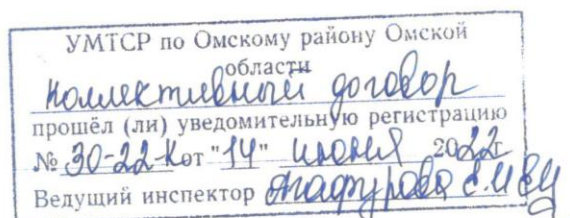 УМТСР по Омскому району Омской
области
Коллективный договор
прошёл (ли) уведомительную регистрацию
№ 30-22-К от "14" июня 2022г.
Ведущий инспектор Агафурова Е.И